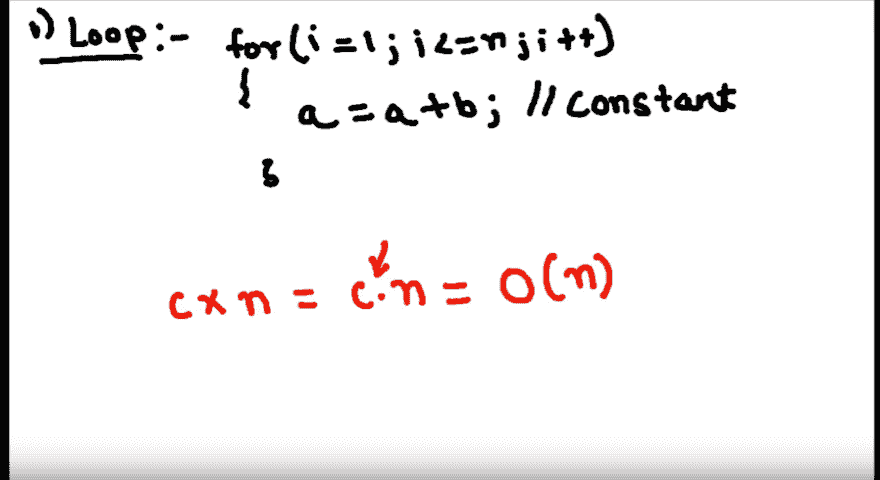 1) Loop :- for(i=1; i<=n; i++)
{
a=a+b; // constant
}
c×n = c.n = O(n)